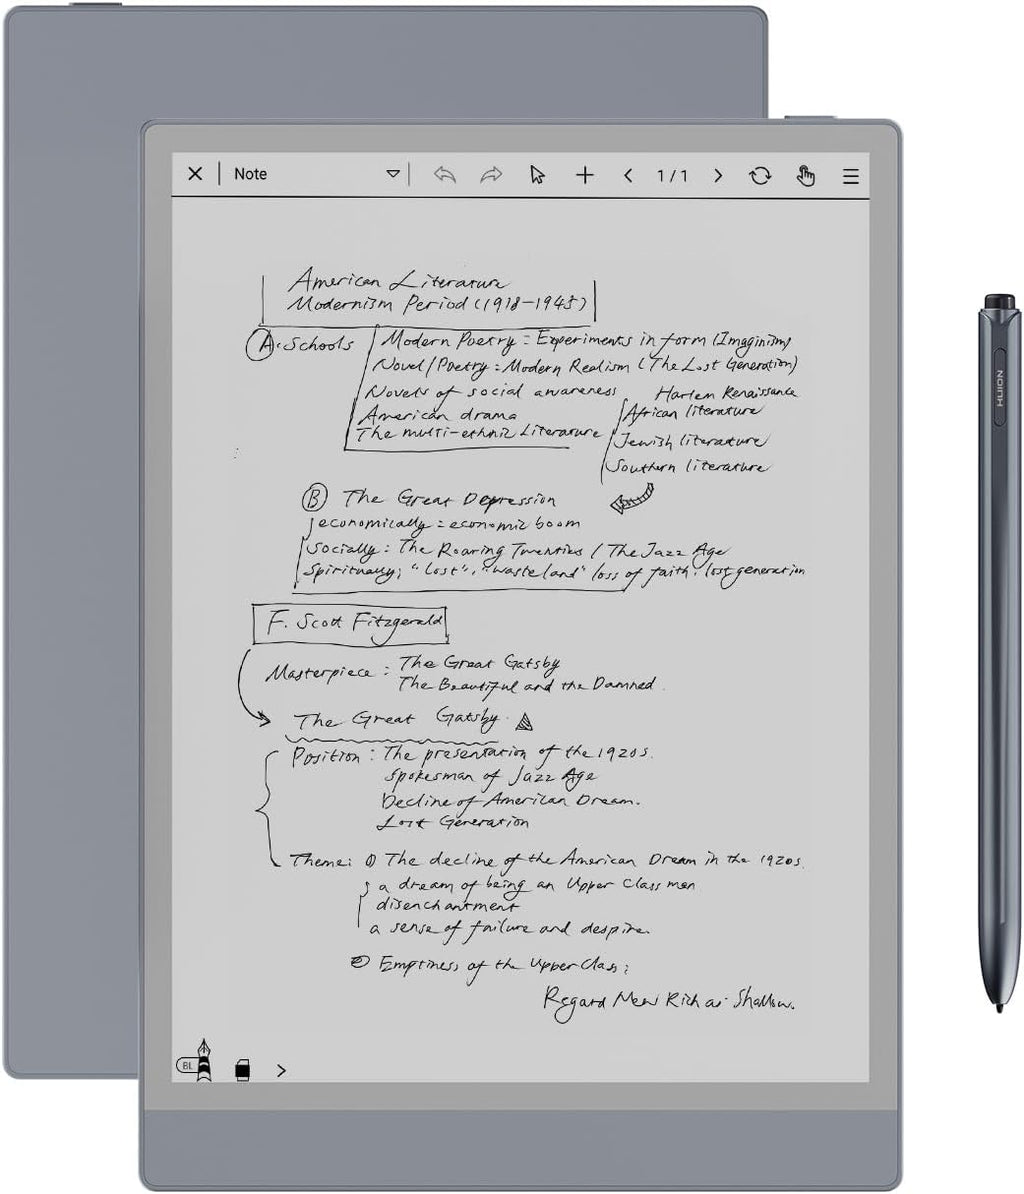 Note
1/1
American Literature
Modernism Period (1918-1945)
A. Schools
Modern Poetry: Experiments in form (Imaginism)
Novel/Poetry: Modern Realism (The Lost Generation)
Novels of social awareness
Harlem Renaissance
American drama
African literature
The multi-ethnic Literature
Jewish literature
Southern literature
B The Great Depression
economically: economic boom
Socially: The Roaring Twenties / The Jazz Age
Spiritually; "Lost", "wasteland" loss of faith. lost generation
F. Scott Fitzgerald
Masterpiece: The Great Gatsby
The Beautiful and the Damned
The Great Gatsby
Position: The presentation of the 1920s.
spokesman of Jazz Age
Decline of American Dream.
Lost Generation
Theme: ① The decline of the American Dream in the 1920s.
a dream of being an Upper Class man
disenchantment
a sense of failure and despire.
② Emptiness of the Upper Class;
Regard New Rich as Shallow.
BL
HUION